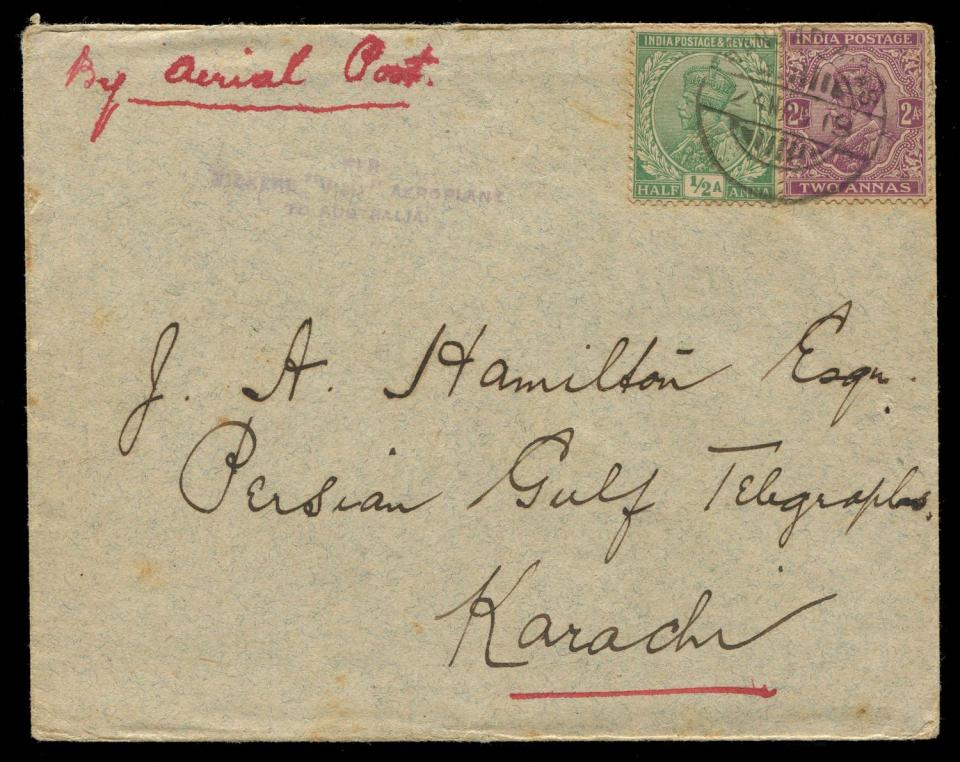 By Aerial Post.
INDIA POSTAGE & REVENUE
HALF 1/2 A ANNA
INDIA POSTAGE
2As 2As
TWO ANNAS
PER
VICKERS "VIMY" AEROPLANE
TO AUSTRALIA
J. A. Hamilton Esqr.
Persian Gulf Telegraphs.
Karachi